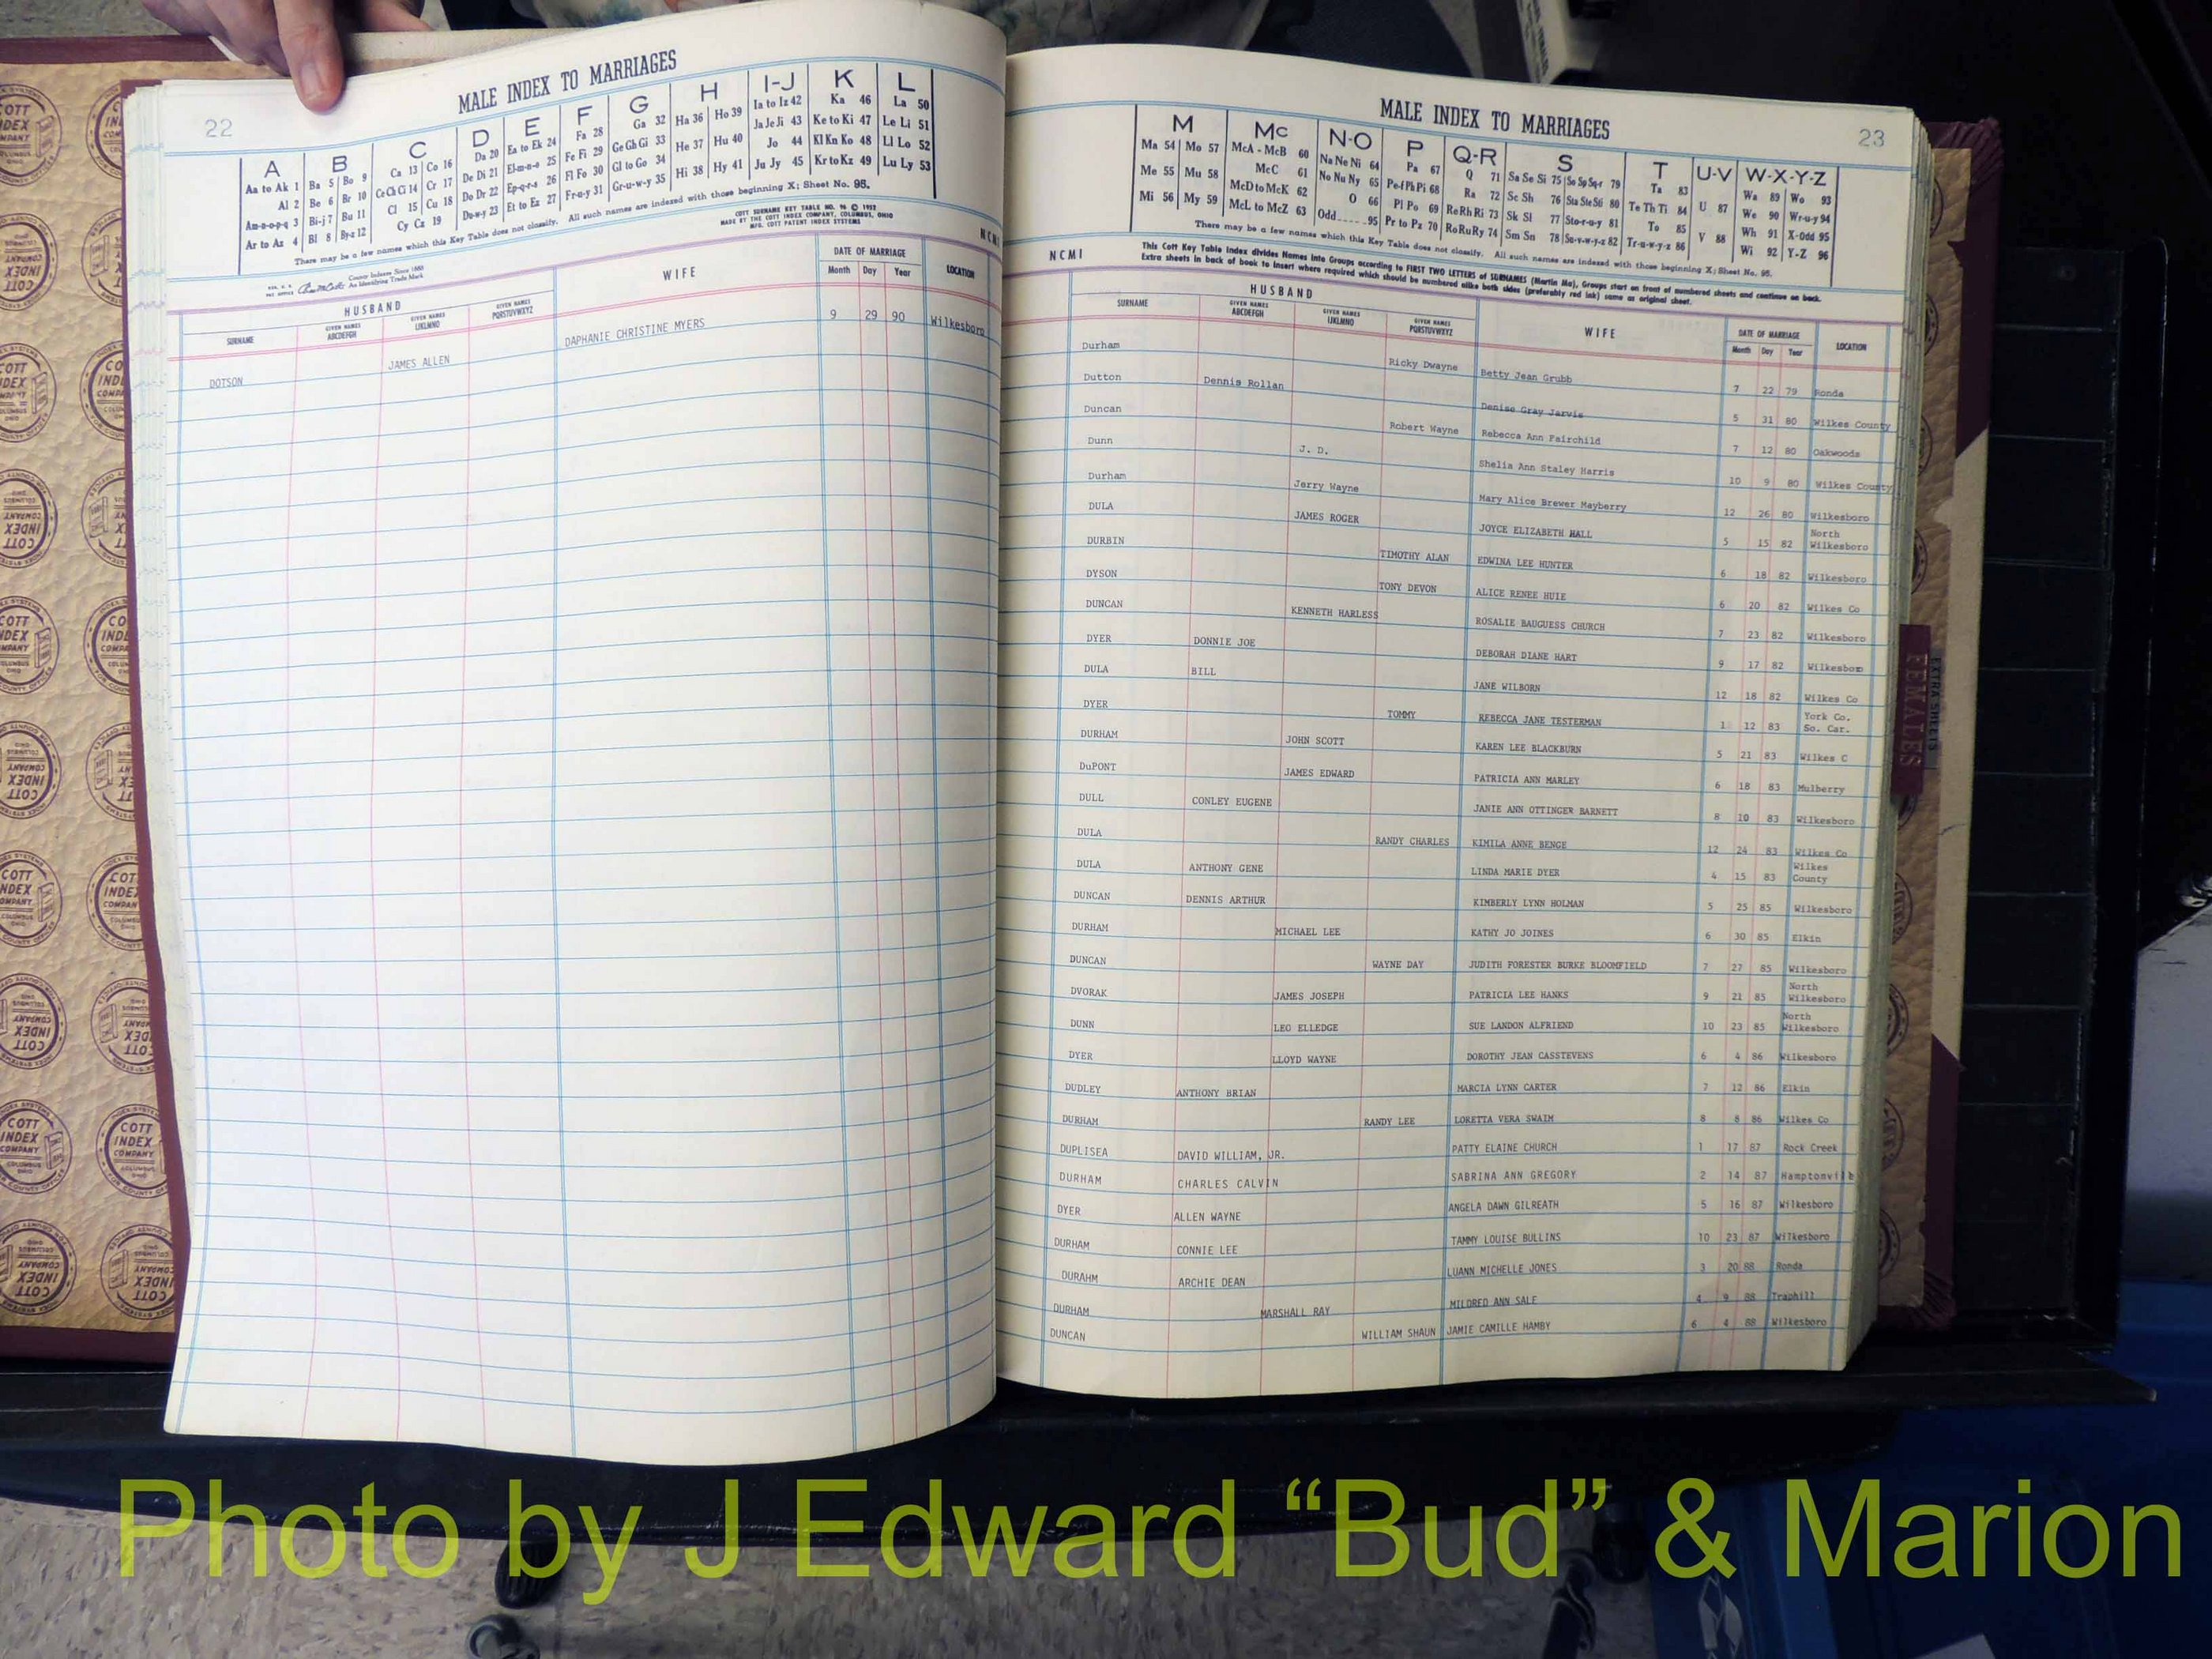 22
MALE INDEX TO MARRIAGES
A B C D E F G H I-J K L
Aa to Ak 1 Ba 5 Bo 9 Ca 13 Co 16 Da 20 Ea to Ek 24 Fa 28 Ga 32 Ha 36 Ho 39 Ia to Iz 42 Ka 46 La 50
Al 2 Be 6 Br 10 Ce Ch Ci 14 Cr 17 De Di 21 El-m-n-o 25 Fe Fi 29 Ge Gh Gi 33 He 37 Hu 40 Ja Je Ji 43 Ke to Ki 47 Le Li 51
Am-n-o-p-q 3 Bi-j 7 Bu 11 Cl 15 Cu 18 Do Dr 22 Ep-q-r-s 26 Fl Fo 30 Gl to Go 34 Hi 38 Hy 41 Jo 44 Kl Kn Ko 48 Ll Lo 52
Ar to Az 4 Bl 8 By-z 12 Cy Cz 19 Du-w-y 23 Et to Ez 27 Fr-u-y 31 Gr-u-w-y 35 Ju Jy 45 Kr to Kz 49 Lu Ly 53
There may be a few names which this Key Table does not classify. All such names are indexed with those beginning X; Sheet No. 95.
COTT SURNAME KEY TABLE NO. 96 © 1952
MADE BY THE COTT INDEX COMPANY, COLUMBUS, OHIO
MFG. COTT PATENT INDEX SYSTEMS
County Indexes Since 1888
An Identifying Trade Mark
HUSBAND WIFE DATE OF MARRIAGE LOCATION
SURNAME GIVEN NAMES ABCDEFGH GIVEN NAMES IJKLMNO GIVEN NAMES PQRSTUVWXYZ Month Day Year
DOTSON JAMES ALLEN DAPHANIE CHRISTINE MYERS 9 29 90 Wilkesboro
MALE INDEX TO MARRIAGES
23
M Mc N-O P Q-R S T U-V W-X-Y-Z
Ma 54 Mo 57 McA - McB 60 Na Ne Ni 64 Pa 67 Q 71 Sa Se Si 75 So Sp Sq-r 79 Ta 83 U 87 Wa 89 Wo 93
Me 55 Mu 58 McC 61 No Nu Ny 65 Pe-f Ph Pi 68 Ra 72 Sc Sh 76 Sta Ste Sti 80 Te Th Ti 84 V 88 We 90 Wr-u-y 94
Mi 56 My 59 McD to McK 62 O 66 Pl Po 69 Re Rh Ri 73 Sk Sl 77 Sto-r-u-y 81 To 85 Wh 91 X-Odd 95
McL to McZ 63 Odd 95 Pr to Pz 70 Ro Ru Ry 74 Sm Sn 78 Su-v-w-y-z 82 Tr-u-w-y-z 86 Wi 92 Y-Z 96
There may be a few names which this Key Table does not classify. All such names are indexed with those beginning X; Sheet No. 95.
NCMI
This Cott Key Table Index divides Names into Groups according to FIRST TWO LETTERS of SURNAMES (Martin Ma), Groups start on front of numbered sheets and continue on back.
Extra sheets in back of book to insert where required which should be numbered alike both sides (preferably red ink) same as original sheet.
HUSBAND WIFE DATE OF MARRIAGE LOCATION
SURNAME GIVEN NAMES ABCDEFGH GIVEN NAMES IJKLMNO GIVEN NAMES PQRSTUVWXYZ Month Day Year
Durham Ricky Dwayne Betty Jean Grubb 7 22 79 Ronda
Dutton Dennis Rollan Denise Gray Jarvis 5 31 80 Wilkes County
Duncan Robert Wayne Rebecca Ann Fairchild 7 12 80 Oakwoods
Dunn J. D. Shelia Ann Staley Harris 10 9 80 Wilkes County
Durham Jerry Wayne Mary Alice Brewer Mayberry 12 26 80 Wilkesboro
DULA JAMES ROGER JOYCE ELIZABETH HALL 5 15 82 North Wilkesboro
DURBIN TIMOTHY ALAN EDWINA LEE HUNTER 6 18 82 Wilkesboro
DYSON TONY DEVON ALICE RENEE HUIE 6 20 82 Wilkes Co
DUNCAN KENNETH HARLESS ROSALIE BAUGUESS CHURCH 7 23 82 Wilkesboro
DYER DONNIE JOE DEBORAH DIANE HART 9 17 82 Wilkesboro
DULA BILL JANE WILBORN 12 18 82 Wilkes Co
DYER TOMMY REBECCA JANE TESTERMAN 1 12 83 York Co. So. Car.
DURHAM JOHN SCOTT KAREN LEE BLACKBURN 5 21 83 Wilkes C
DuPONT JAMES EDWARD PATRICIA ANN MARLEY 6 18 83 Mulberry
DULL CONLEY EUGENE JANIE ANN OTTINGER BARNETT 8 10 83 Wilkesboro
DULA RANDY CHARLES KIMILA ANNE BENGE 12 24 83 Wilkes Co
DULA ANTHONY GENE LINDA MARIE DYER 4 15 83 Wilkes County
DUNCAN DENNIS ARTHUR KIMBERLY LYNN HOLMAN 5 25 85 Wilkesboro
DURHAM MICHAEL LEE KATHY JO JOINES 6 30 85 Elkin
DUNCAN WAYNE DAY JUDITH FORESTER BURKE BLOOMFIELD 7 27 85 Wilkesboro
DVORAK JAMES JOSEPH PATRICIA LEE HANKS 9 21 85 North Wilkesboro
DUNN LEO ELLEDGE SUE LANDON ALFRIEND 10 23 85 North Wilkesboro
DYER LLOYD WAYNE DOROTHY JEAN CASSTEVENS 6 4 86 Wilkesboro
DUDLEY ANTHONY BRIAN MARCIA LYNN CARTER 7 12 86 Elkin
DURHAM RANDY LEE LORETTA VERA SWAIM 8 8 86 Wilkes Co
DUPLISEA DAVID WILLIAM, JR. PATTY ELAINE CHURCH 1 17 87 Rock Creek
DURHAM CHARLES CALVIN SABRINA ANN GREGORY 2 14 87 Hamptonville
DYER ALLEN WAYNE ANGELA DAWN GILREATH 5 16 87 Wilkesboro
DURHAM CONNIE LEE TAMMY LOUISE BULLINS 10 23 87 Wilkesboro
DURAHM ARCHIE DEAN LUANN MICHELLE JONES 3 20 88 Ronda
DURHAM MARSHALL RAY MILDRED ANN SALE 4 9 88 Traphill
DUNCAN WILLIAM SHAUN JAMIE CAMILLE HAMBY 6 4 88 Wilkesboro
EXTRA SHEETS
FEMALES
COTT INDEX COMPANY
COLUMBUS OHIO
Photo by J Edward “Bud” & Marion